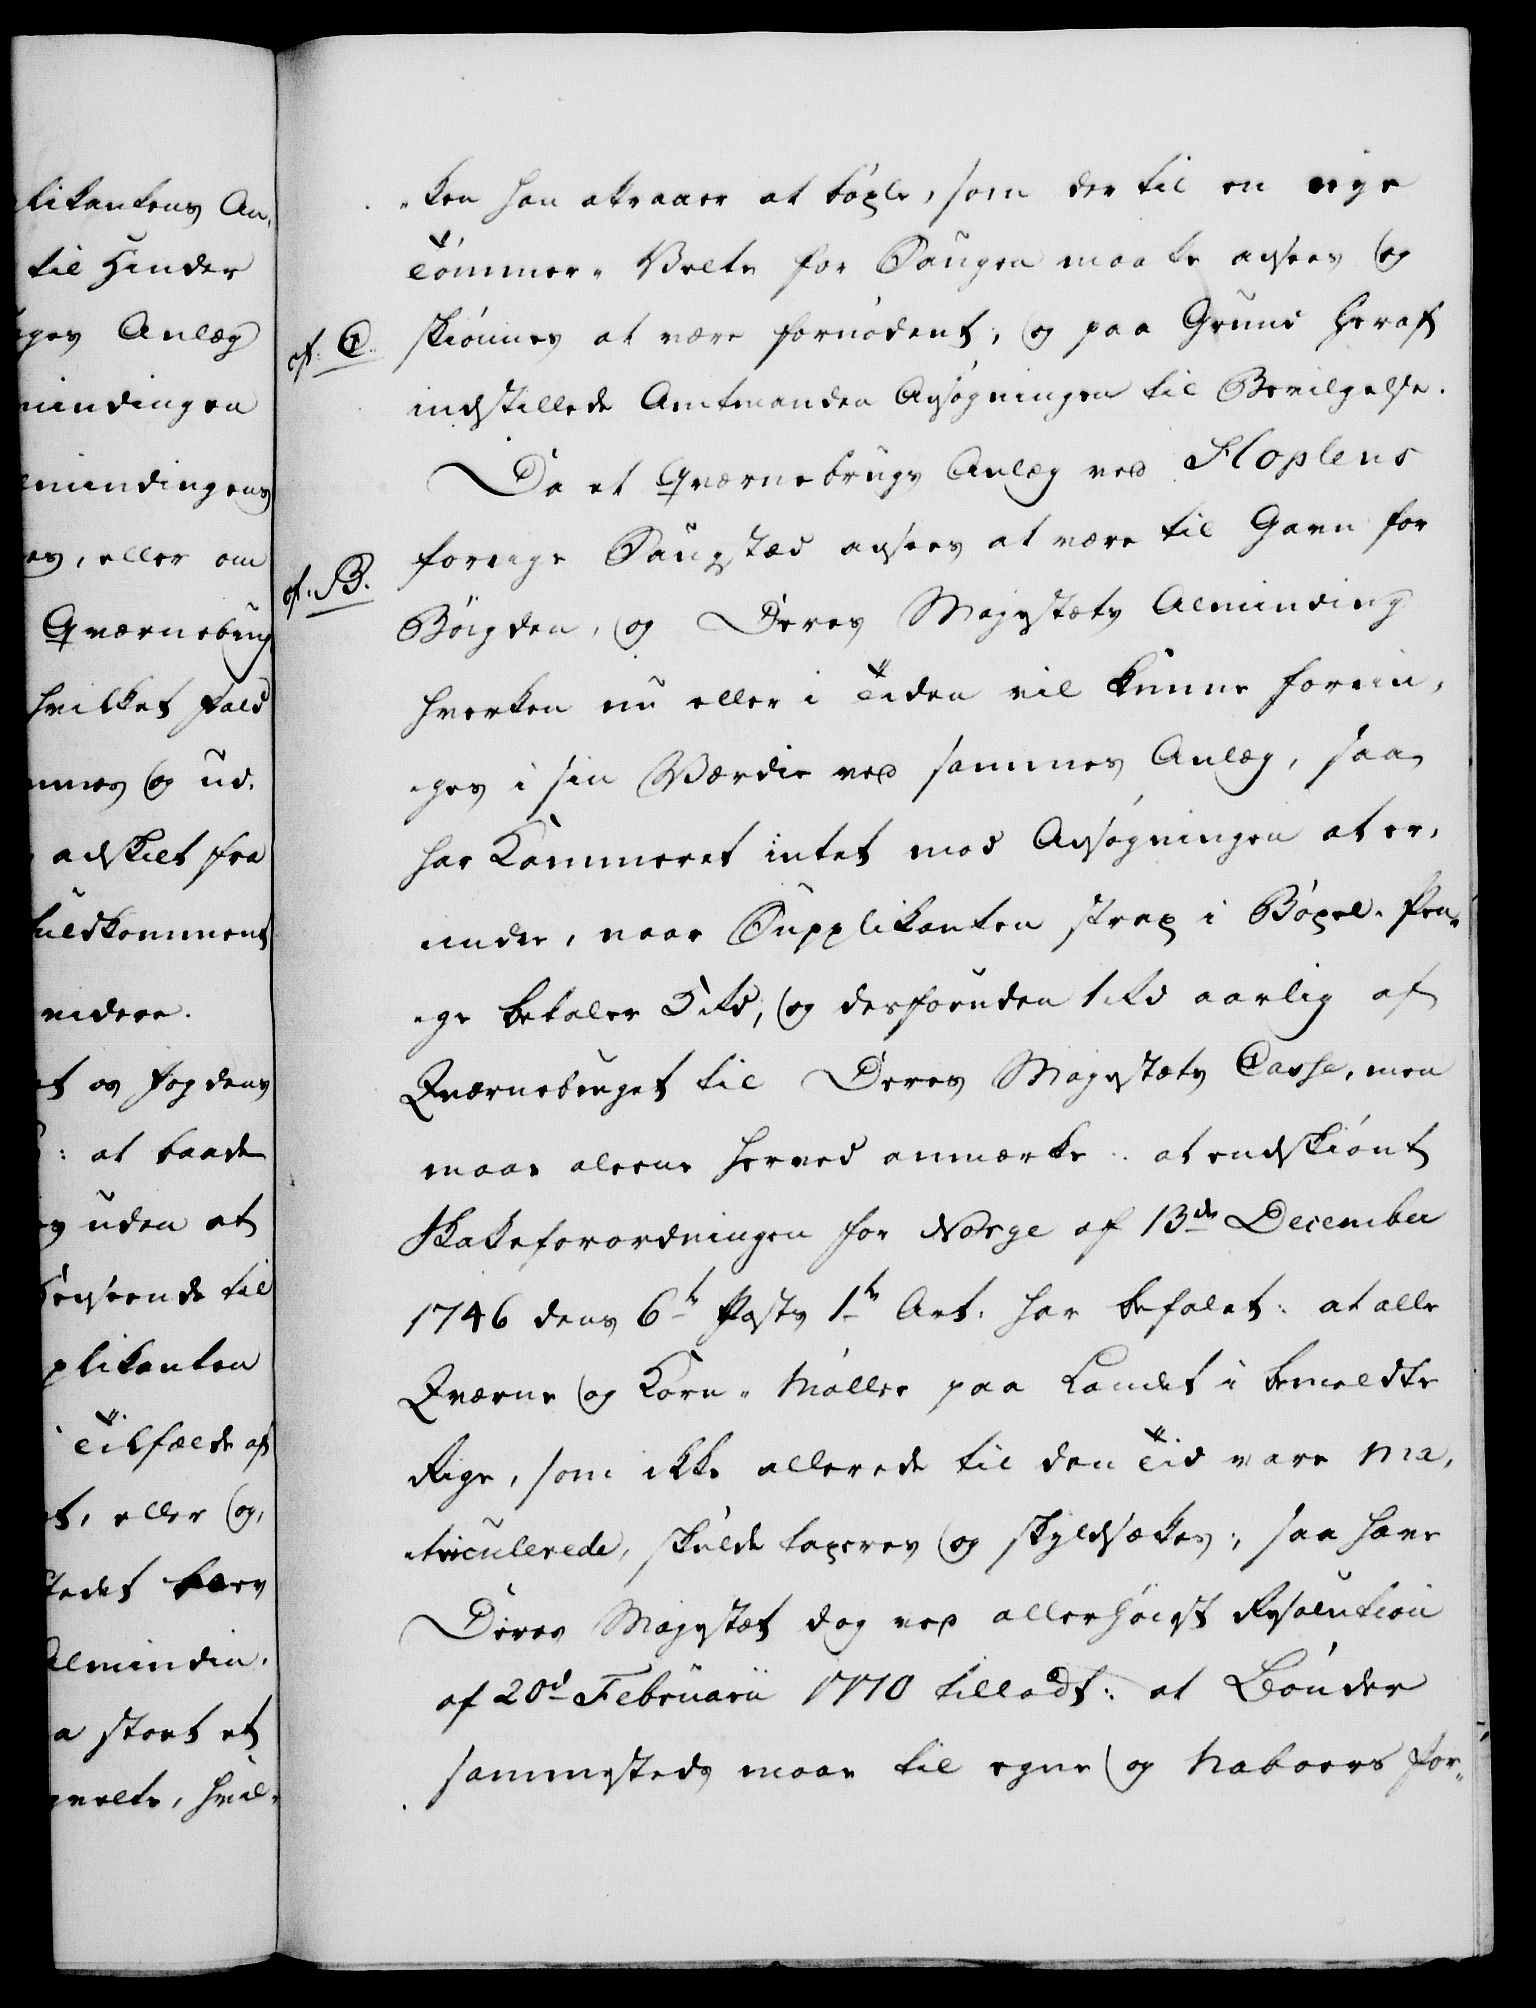 likantens An-
til Hinder
uges Anlæg
mindingen
mindingens
es, eller om
Qværnebrug
hvilket Fald
mmes og ud-
adskilt fra
fuldkomment
videre.
et os Fogdens
: at baade
es uden at
Henseende til
plikanten
i Tilfælde af
et, eller og,
stedet bære
Almindin-
a stort et
velte, hvil-
-ken han attraaer at böxle, som der til en nye
Tömmer-Velte for Saugen maatte ansees og
cf. C. skiönnes at være fornödent; og paa Grund heraf
indstillede Amtmanden Ansögningen til Bevilgelse.
Da et Qværnebrugs Anlæg ved Hoplens
forrige Saugstæd ansees at være til Gavn for
cf. B. Böigden, og Deres Majestæts Alminding
hverken nu eller i Tiden vil kunne forrin-
-ges i sin Værdie ved sammes Anlæg, saa
har Kammeret intet mod Ansögningen at er-
indre, naar Supplikanten strax i Böxel-Pen-
-ge betaler 5 Rd, og desforuden 1 Rd aarlig af
Qværnebruget til Deres Majestæts Casse, men
maae alleene herved anmærke: at endskiönt
Skatteforordningen for Norge af 13de December
1746 dens 6te Posts 1te Art. har befalet: at alle
Qværne og Korn-Möller paa Landet i bemeldte
Rige, som ikke allerede til den Tid vare Ma-
-triculerede, skulde taxeres og skyldsættes; saa have
Deres Majestæt dog ved allerhöiest Resolution
af 20d Februarii 1770 tilladt: at Bönder
sammesteds maae til egne og Naboers For-